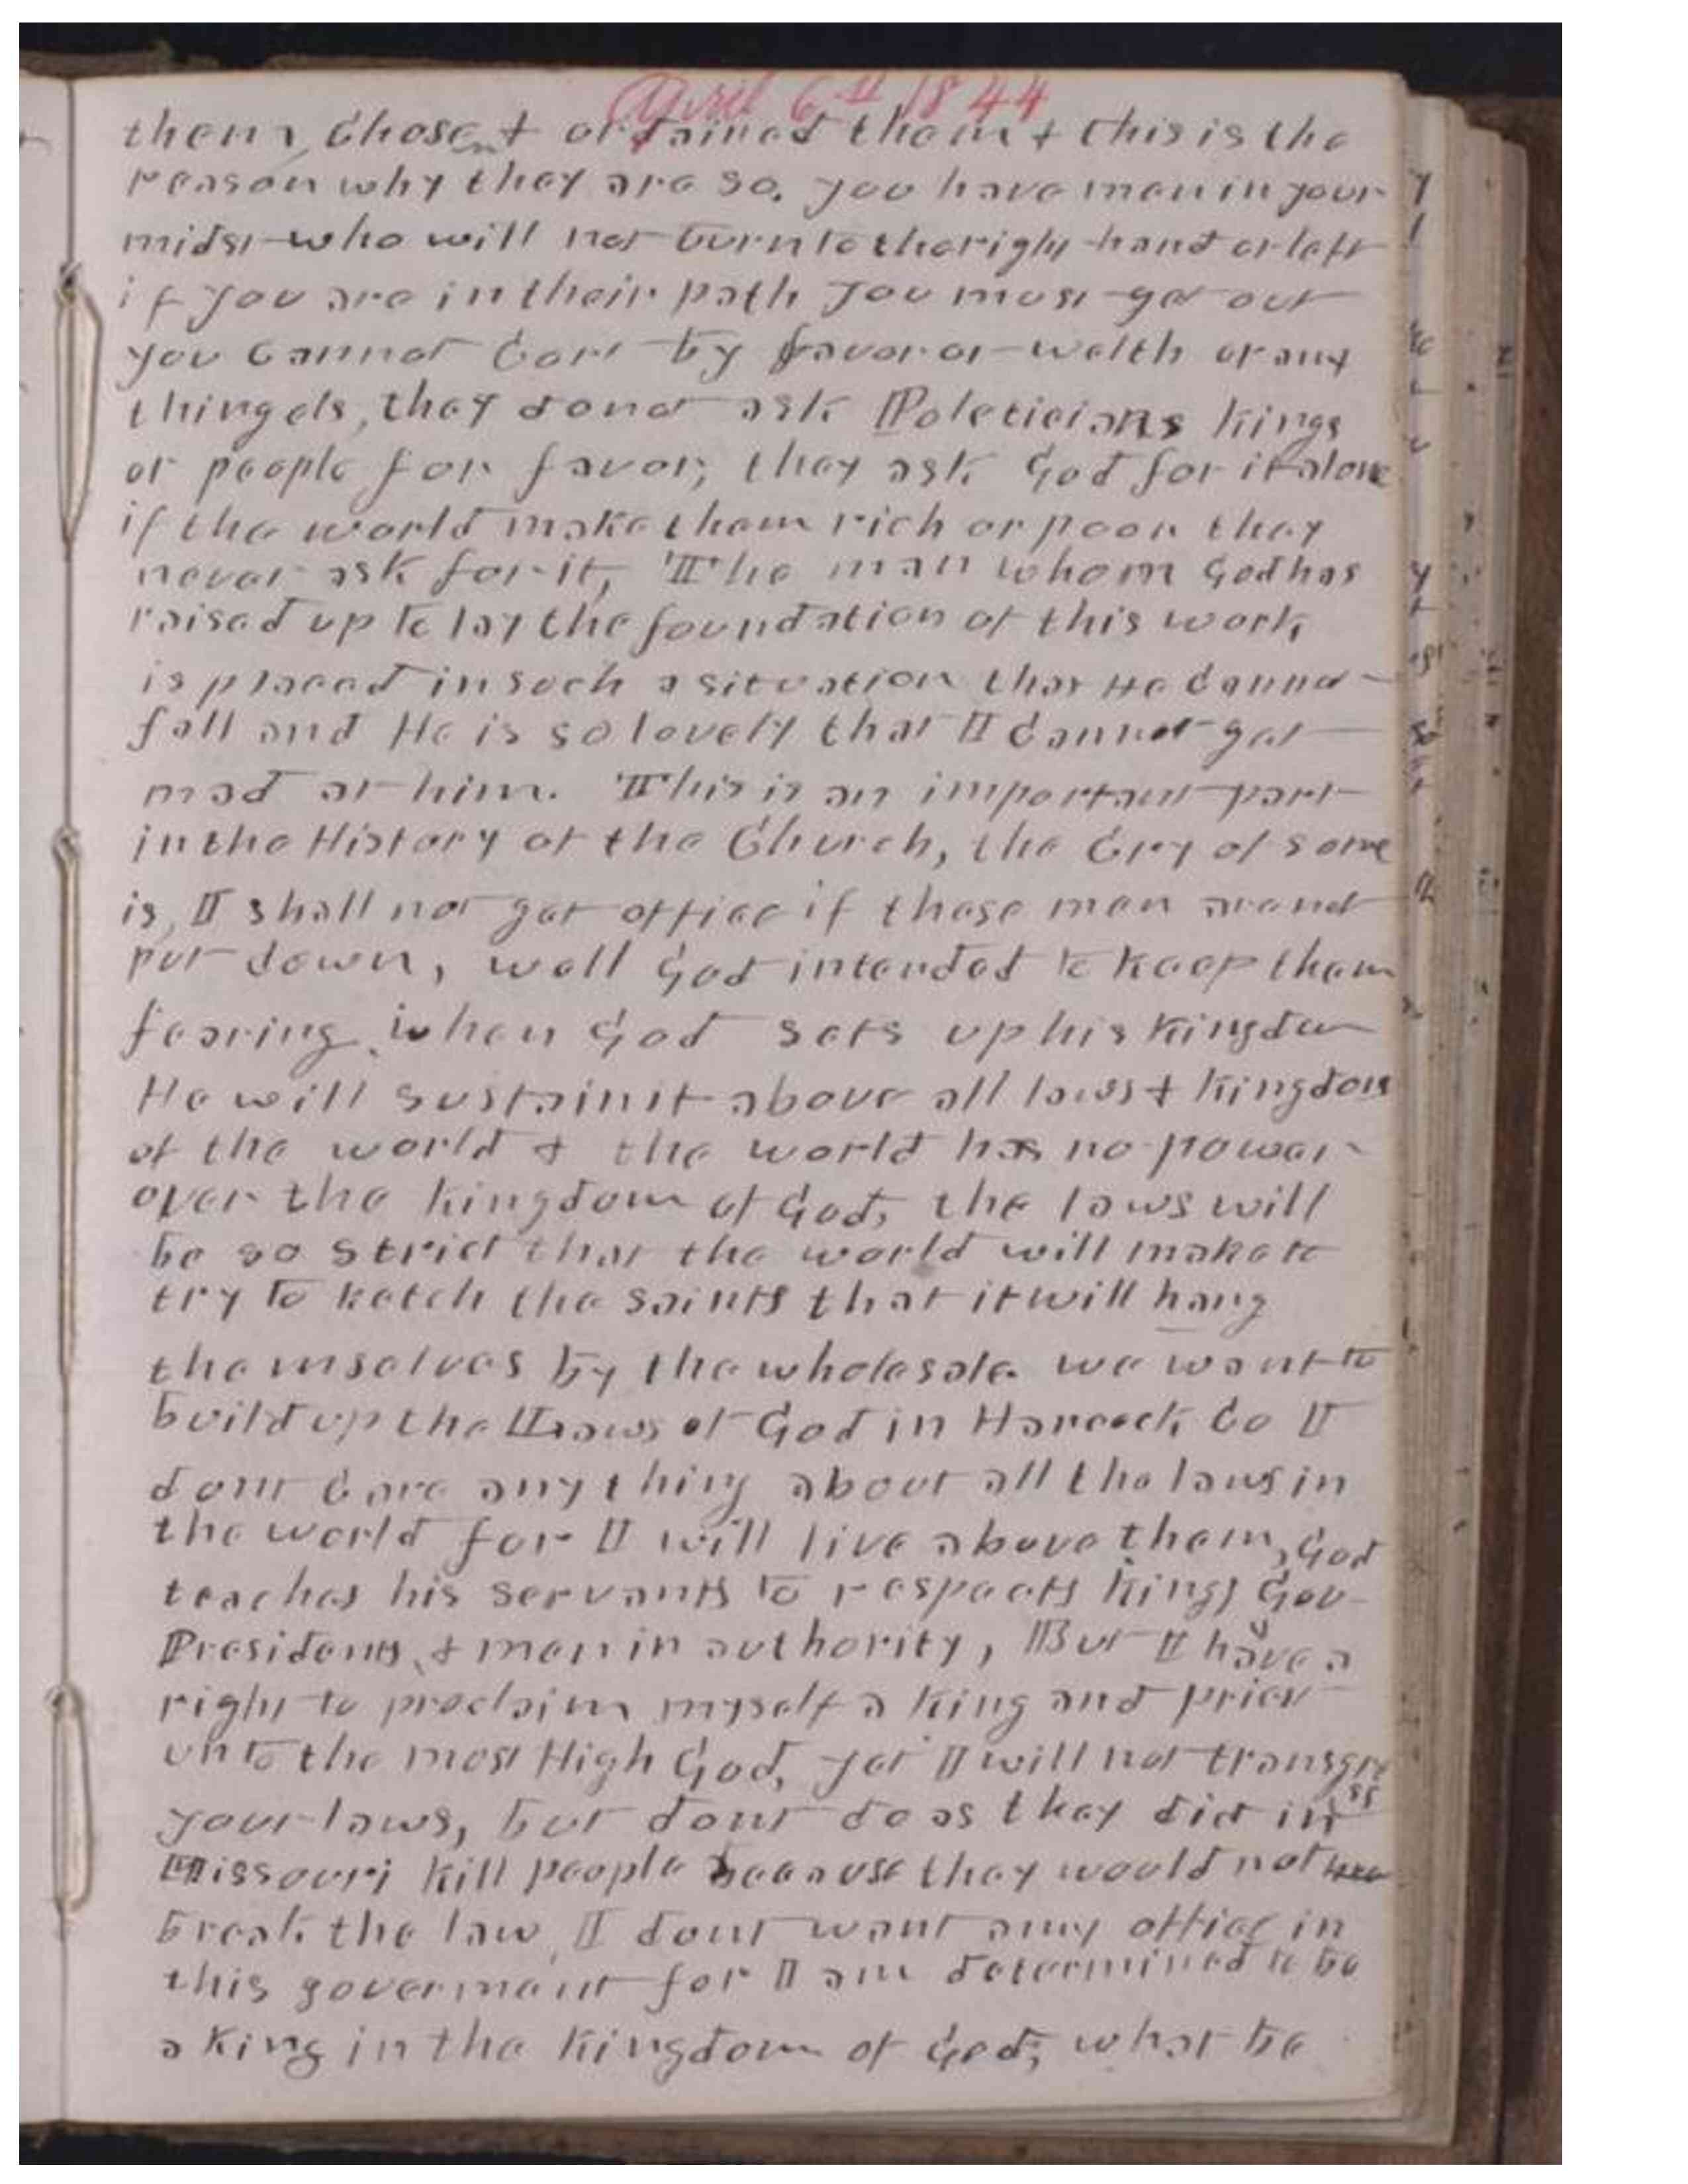 April 6th 1844
them, Chosen & ordained them & this is the
reason why they are so. you have men in your
midst who will not turn to the right hand or left
if you are in their path you must get out
you cannot Cort by favor or welth or any
thing els, they do not ask Poleticians Kings
or people for favor, they ask God for it alone
if the world make them rich or poor they
never ask for it, The man whom God has
raised up to lay the foundation of this work
is placed in such a situation that He Cannot
fall and He is so lovely that I Cannot get
mad at him. This is an important part
in the History of the Church, the Cry of some
is, I shall not get office if these men are not
put down, well God intended to keep them
fearing, when God sets up his Kingdom
He will sustain it above all laws & kingdoms
of the world & the world has no power
over the kingdom of God, the laws will
be so strict that the world will make to
try to ketch the saints that it will hang
themselves by the wholesale. we want to
build up the Laws of God in Hancock Co I
dont Care any thing about all the laws in
the world for I will live above them, God
teaches his servants to respects Kings Gov
Presidents, & men in authority, But I have a
right to proclaim myself a King and priest
unto the most High God, yet I will not transgress
your laws, but dont do as they did in
Missouri kill people because they would not
break the law, I dont want any office in
this goverment for I am determined to be
a King in the Kingdom of God; what be